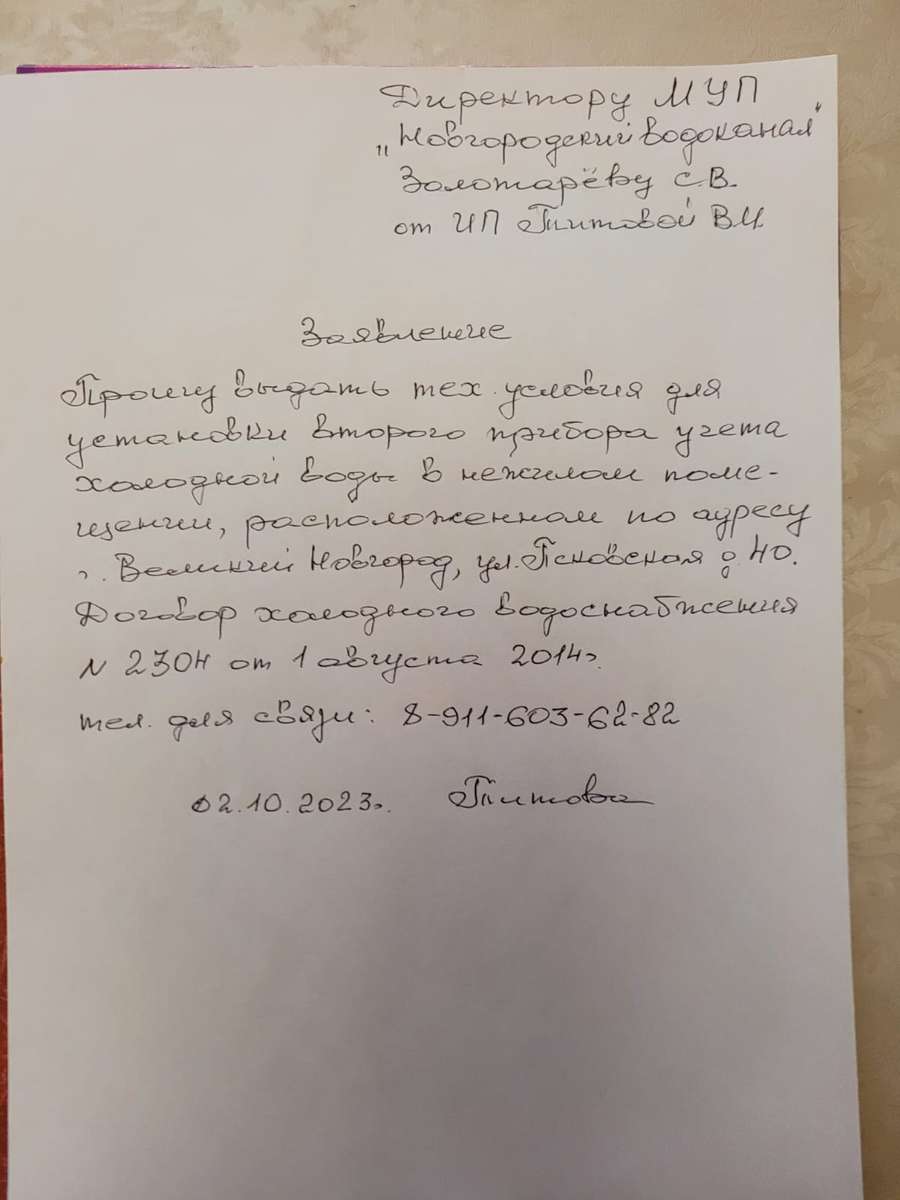 Директору МУП
"Новгородский водоканал"
Золотарёву С.В.
от ИП Титовой В.И.
Заявление
Прошу выдать тех. условия для
установки второго прибора учета
холодной воды в нежилом поме-
щении, расположенном по адресу
г. Великий Новгород, ул. Псковская д. 40.
Договор холодного водоснабжения
N 2304 от 1 августа 2014г.
тел. для связи: 8-911-603-62-82
02.10.2023г. Титова